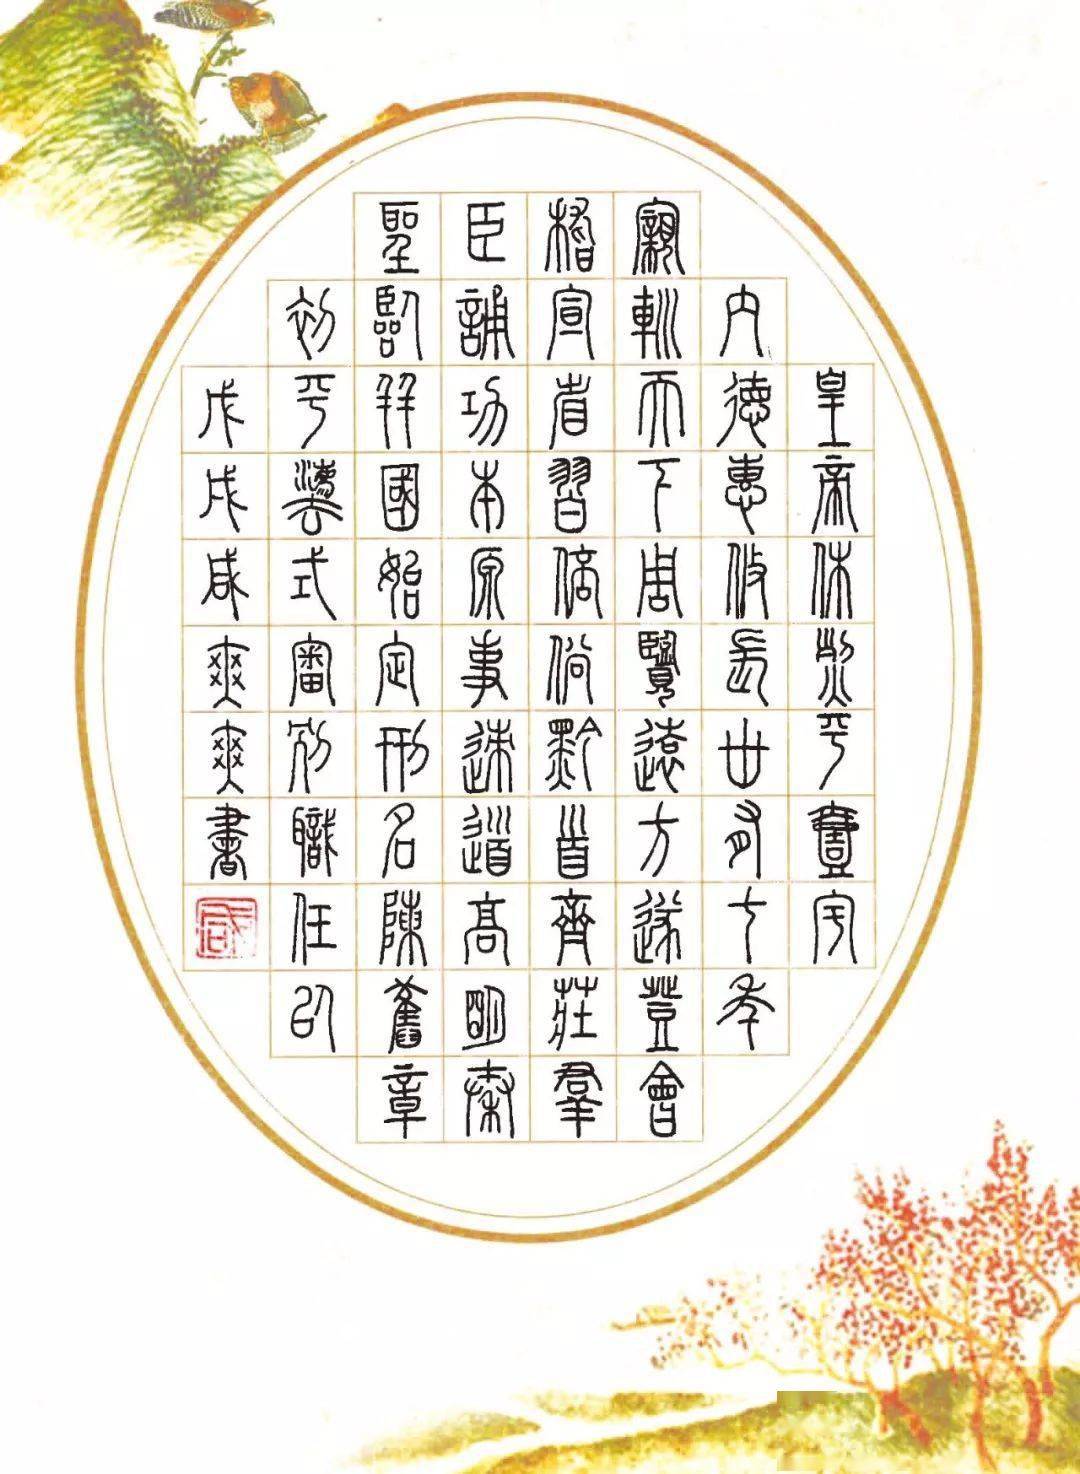 皇帝休烈平壹宇
内德惠攸長丗有七年
親巡天下周覽遠方遂登會
稽宣省習俗黔首齊莊羣
臣誦功本原事迹道高明秦
聖臨并國始定刑名陳舊章
初平灋式審別職任以
戊戌咸爽爽書
咸